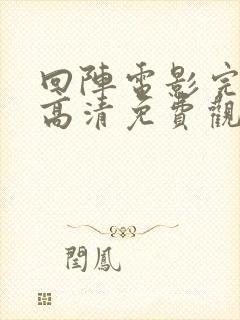 回陣電影完
高清免費觀
閏鳳